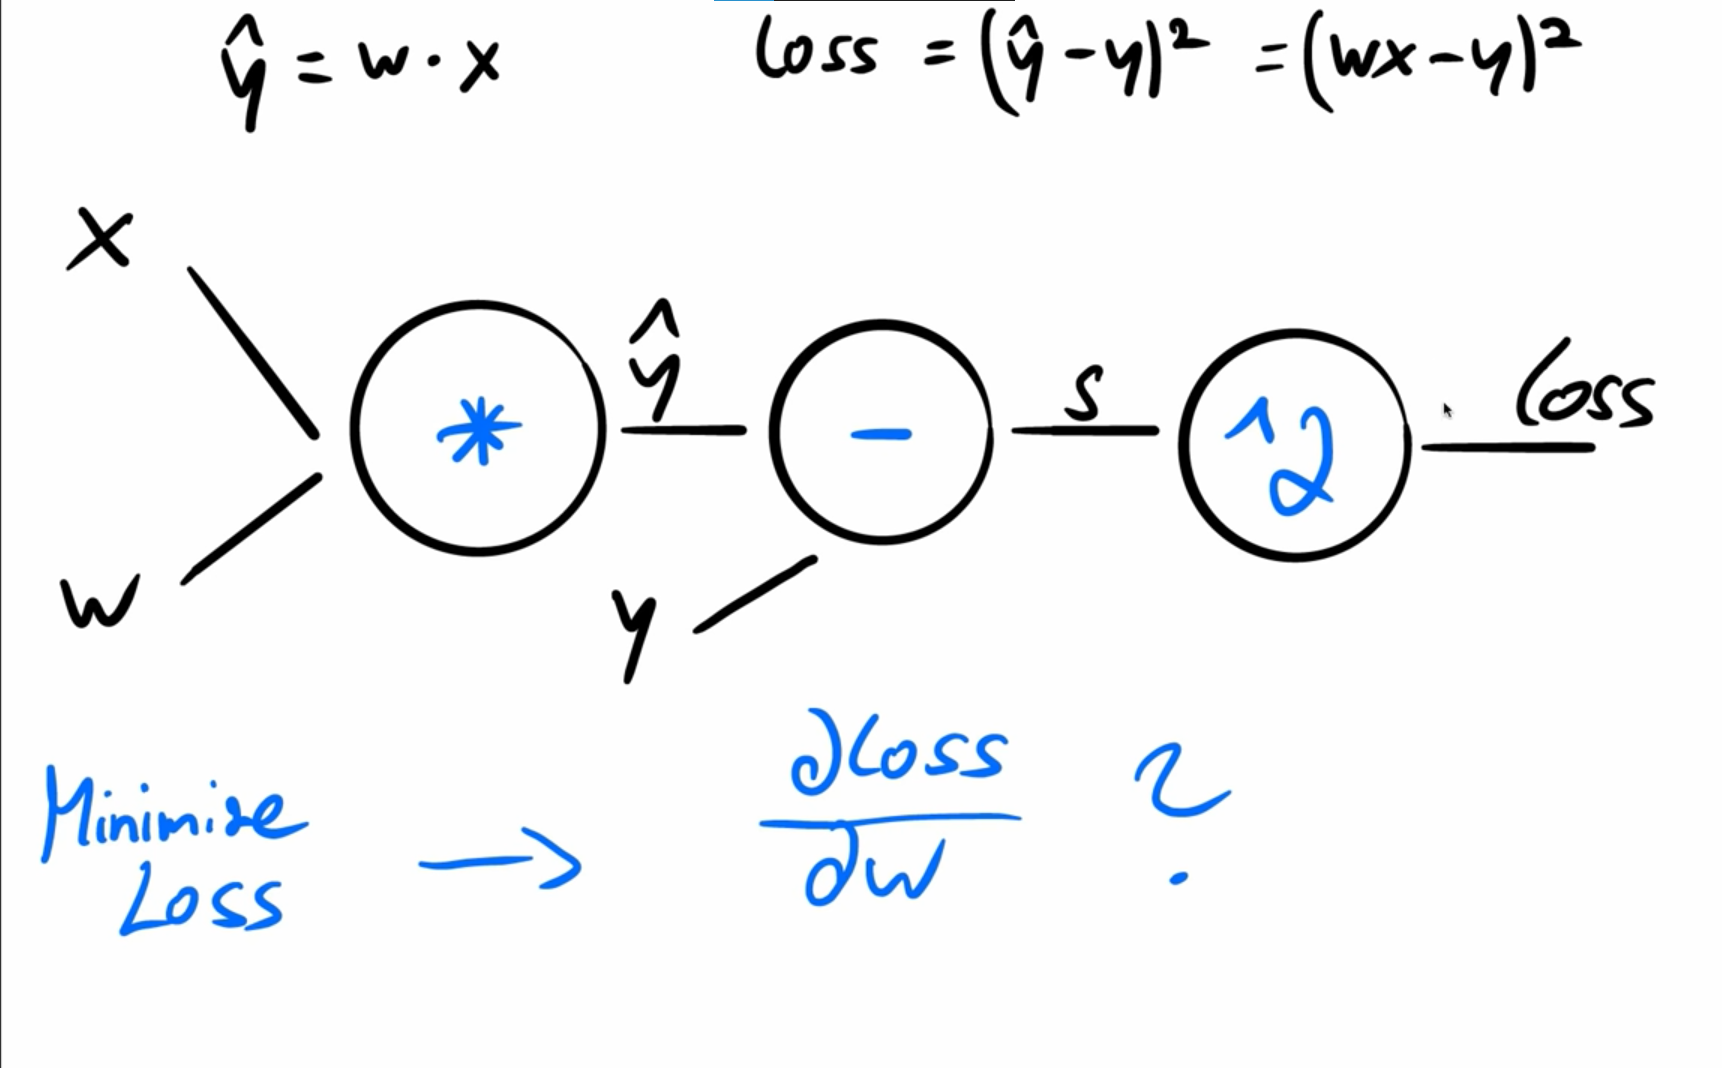 ŷ = w · x
loss = (ŷ - y)² = (wx - y)²
x
w
*
ŷ
-
y
s
^2
loss
Minimize
Loss
→
∂loss
∂w
?